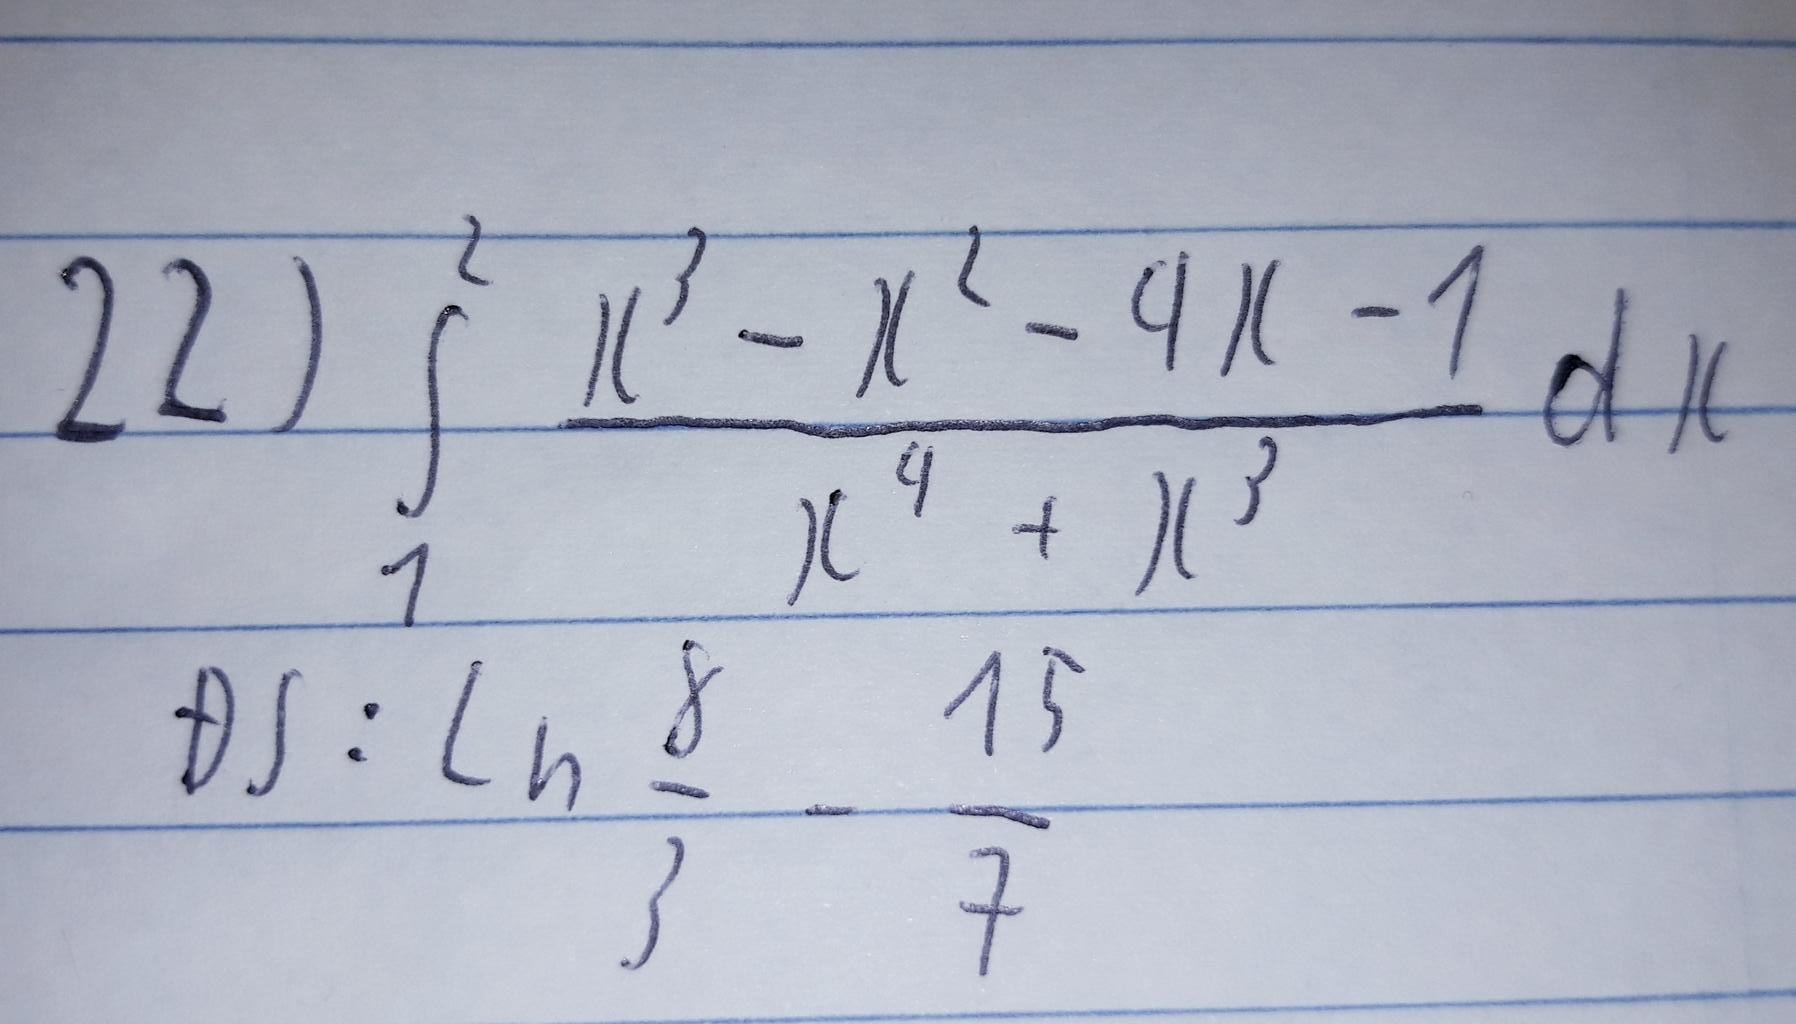 22) ∫₁² (x³ - x² - 4x - 1)/(x⁴ + x³) dx
ĐS: Ln 8/3 - 15/7